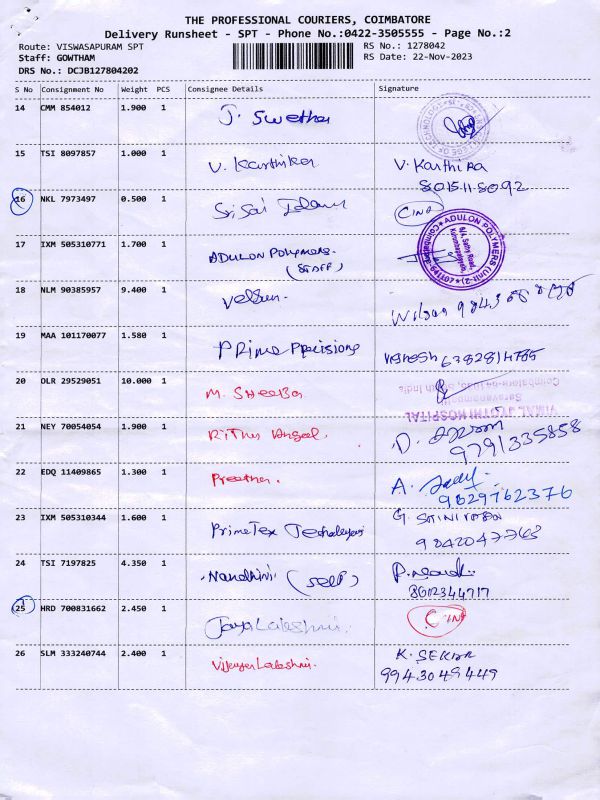 THE PROFESSIONAL COURIERS, COIMBATORE
Delivery Runsheet - SPT - Phone No.:0422-3505555 - Page No.:2
Route: VISWASAPURAM SPT
RS No.: 1278042
Staff: GOWTHAM
RS Date: 22-Nov-2023
DRS No.: DCJB127804202
S No Consignment No Weight PCS Consignee Details Signature
14 CMM 854012 1.900 1 J. Swetha
15 TSI 8097857 1.000 1 V. Karthika V. Karthika
80151 15092
16 NKL 7973497 0.500 1 Sri Sai
17 IXM 505310771 1.700 1 ADULON POLYMERS
(STAFF)
ADULON POLYMERS (Unit-2)
S/A, Sathy Road,
Coimbatore-641107
18 NLM 90385957 9.400 1 Velsun. Wilson
19 MAA 101170077 1.580 1 Prime Precisions Vignesh 6382814785
20 DLR 29529051 10.000 1 M. SHeeBa
VIMAL JYOTHI HOSPITAL
Saravanampatti
21 NEY 70054054 1.900 1 RiThu Angel. D.
9791335858
22 EDQ 11409865 1.300 1 Preetha. A.
9629762376
23 IXM 505310344 1.600 1 PrimeTex G. SRINIVASAN
9842047763
24 TSI 7197825 4.350 1 Nandhini (Self) P.
8012344717
25 HRD 700831662 2.450 1 JayaLakshmi.
26 SLM 333240744 2.400 1 VijayaLakshmi. K. SEKAR
9943049449